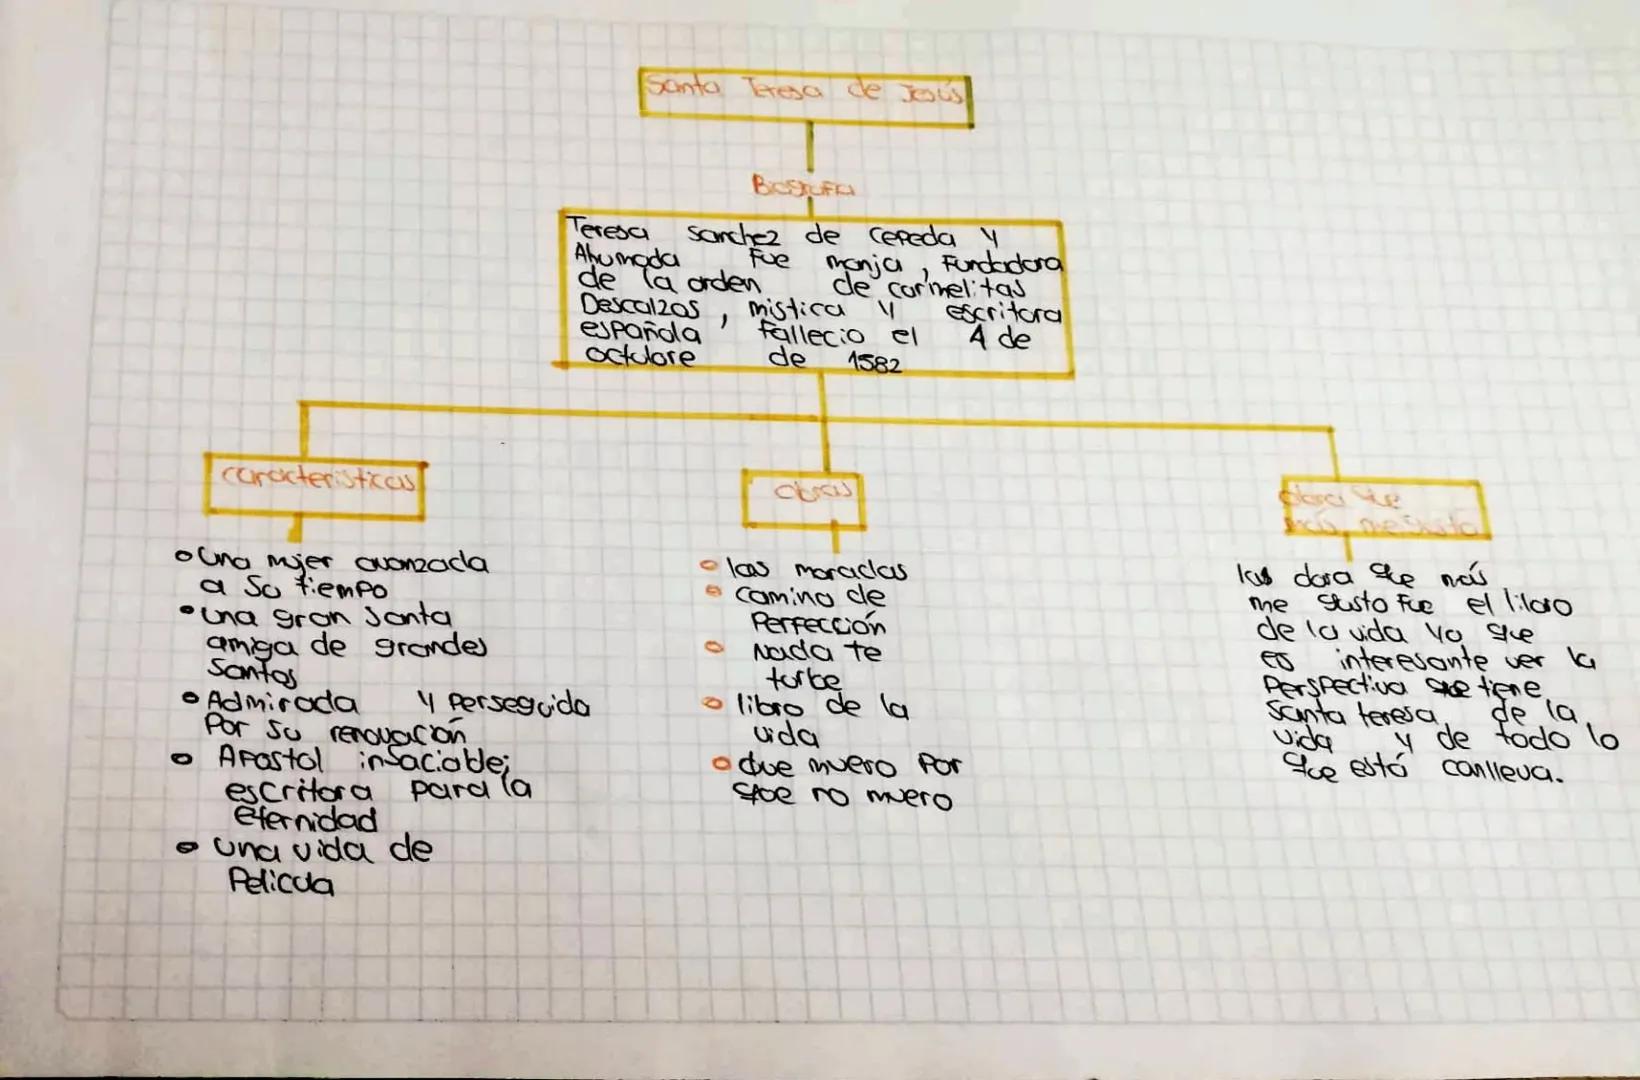 Santa Teresa de Jesús
Biografia
Teresa Sanchez de Cepeda y
Ahumada fue monja, Fundadora
de la orden de carmelitas
Descalzos, mistica y escritora
española fallecio el 4 de
octubre de 1582
caracteristicas
una mujer avanzada
a su tiempo
una gran santa
amiga de grandes
santos
Admirada y perseguida
Por su renovación
Apostol insaciable;
escritora para la
eternidad
una vida de
Pelicula
obras
las moradas
camino de
Perfección
Nada te
turbe
libro de la
vida
que muero por
que no muero
obra que
más me gusto
las dora que más
me gusto fue el libro
de la vida ya que
es interesante ver la
Perspectiva que tiene
Santa teresa de la
vida y de todo lo
que está conlleva.